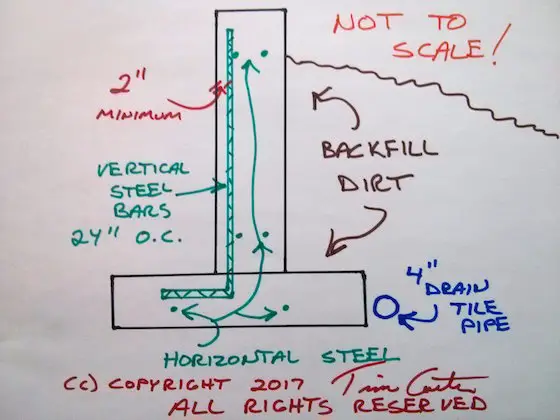 NOT TO
SCALE!
2"
MINIMUM
BACKFILL
DIRT
VERTICAL
STEEL
BARS
24" O.C.
4"
DRAIN
TILE
PIPE
HORIZONTAL STEEL
(C) COPYRIGHT 2017 Tim Carter
ALL RIGHTS RESERVED